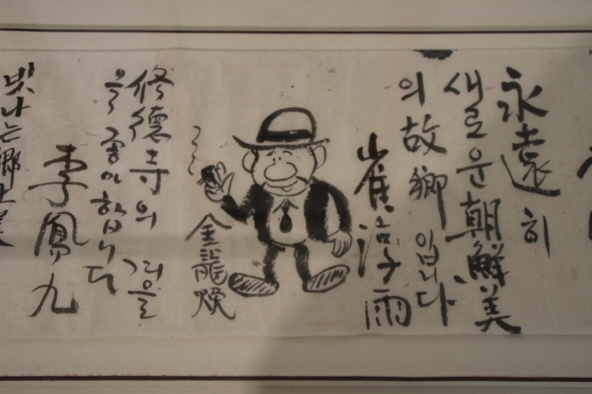 永遠히
새로운 朝鮮美
의 故鄕입니다
崔淳雨
金龍煥
修德寺의 겨울
을 좋아합니다
李鳳九
빛나는 鄕土